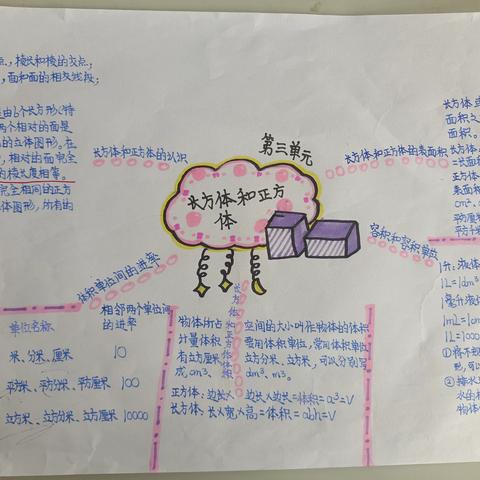 点，棱和棱的交点；
，面和面的相交线段；
由6个长方形(特
两个相对的面是
的立体图形，在
，相对的面完全
的棱长度相等。
完全相同的正方
体图形，所有的
长方体和正方体的认识
第三单元
长方体和正方
体
长方体和正方体的表面积
长方体
面积之
面积。
长方体
正方体
表面积
cm²
平方厘米
平方千米
容积和容积单位
1升：液体
1L=1dm³
1毫升液体
1mL=1cm
1L=1000
体积单位间的进率
单位名称
相邻两个单位间
的进率
米、分米、厘米 10
平方米、平方分米、平方厘米 100
立方米、立方分米、立方厘米 10000
长方体和正方体体积
物体所占空间的大小叫作物体的体积
计量体积要用体积单位，常用体积单位
有立方厘米、立方分米、立方米，可以分别写
成cm³、dm³、m³。
正方体：边长×边长×边长=体积=a³=V
长方体：长×宽×高=体积=abh=V